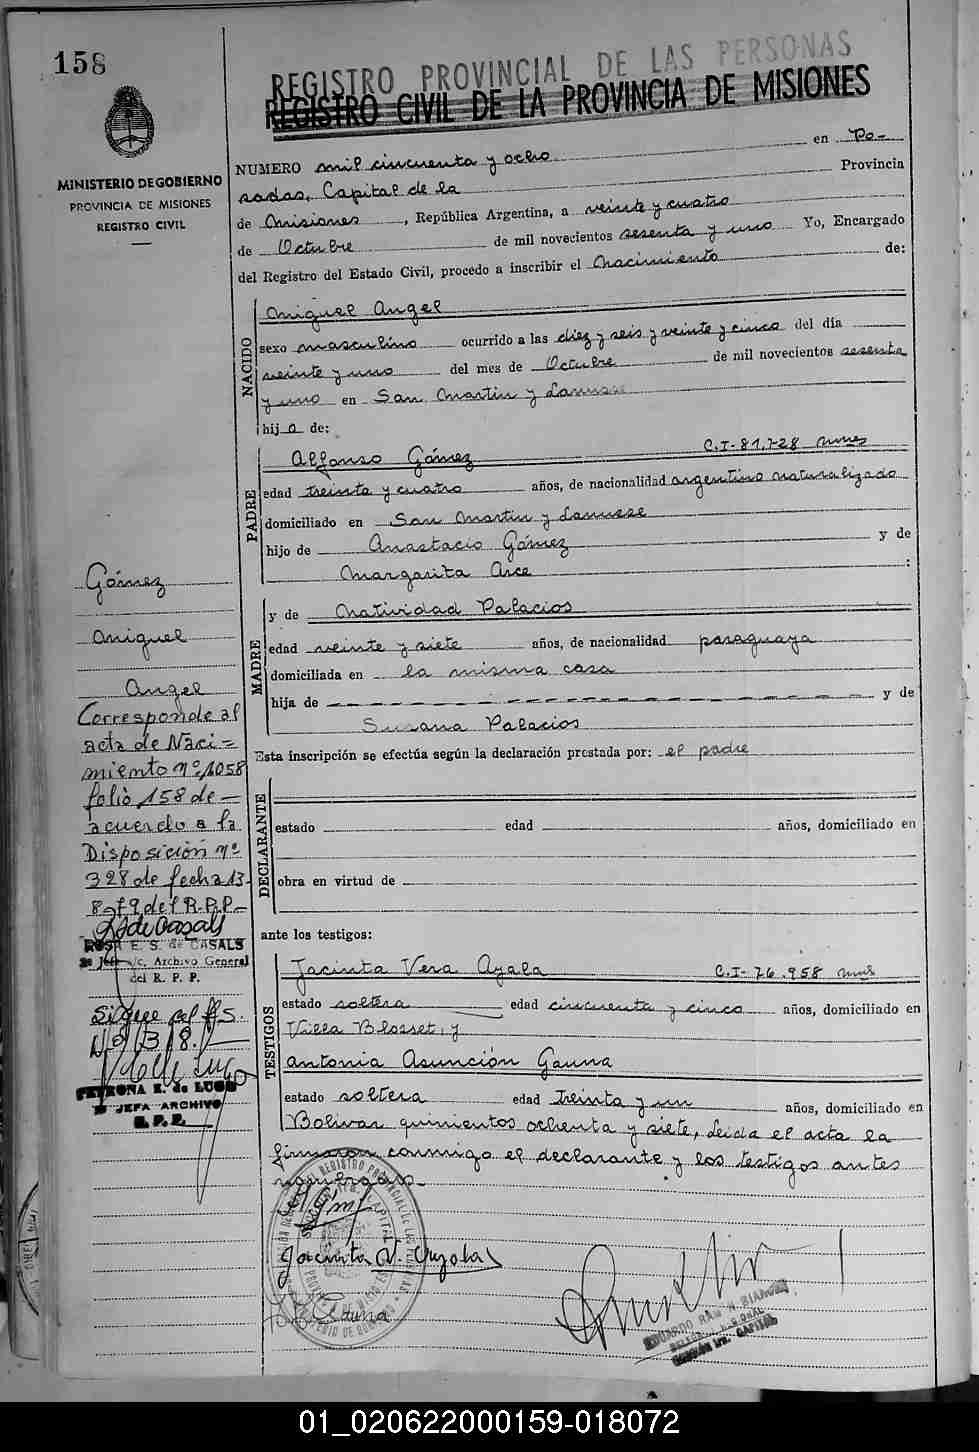 158
REGISTRO PROVINCIAL DE LAS PERSONAS
REGISTRO CIVIL DE LA PROVINCIA DE MISIONES
MINISTERIO DE GOBIERNO
PROVINCIA DE MISIONES
REGISTRO CIVIL
NUMERO mil cincuenta y ocho en Po-
sadas, Capital de la Provincia
de Misiones, República Argentina, a veinte y cuatro
de Octubre de mil novecientos sesenta y uno Yo, Encargado
del Registro del Estado Civil, procedo a inscribir el Nacimiento de:
NACIDO
Miguel Angel
sexo masculino ocurrido a las diez y seis y veinte y cinco del día
veinte y uno del mes de Octubre de mil novecientos sesenta
y uno en San Martin y Lanusse
hijo de:
PADRE
Alfonso Gómez C.I-81.728 mnes
edad treinta y cuatro años, de nacionalidad argentino naturalizado
domiciliado en San Martin y Lanusse
hijo de Anastacio Gómez y de
Margarita Arce :
MADRE
y de Natividad Palacios
edad veinte y siete años, de nacionalidad paraguaya
domiciliada en la misma casa
hija de - - - - - - - - - - y de
Susana Palacios
Esta inscripción se efectúa según la declaración prestada por: el padre
DECLARANTE
estado edad años, domiciliado en
obra en virtud de
ante los testigos:
TESTIGOS
Jacinta Vera Ayala C.I-76.958 mns
estado soltera edad cincuenta y cinco años, domiciliado en
Villa Blosset, y
Antonia Asunción Gauna
estado soltera edad treinta y un años, domiciliado en
Bolivar quinientos ochenta y siete, leida el acta la
firmaron conmigo el declarante y los testigos antes
nombrados.-
Jacinta V. Ayala
Gauna
Gómez
Miguel
Angel
Corresponde al
acta de Naci=
miento nº 1058
folio 158 de-
acuerdo a la
Disposición nº
328 de fecha 13-
8-79 del R.P.P-
ROSA E. S. de CASALS
2º Jefe a/c. Archivo General
del R. P. P.
Sigue al fs.
PETRONA E. de LUGO
2º JEFA ARCHIVO
R. P. P.
01_020622000159-018072